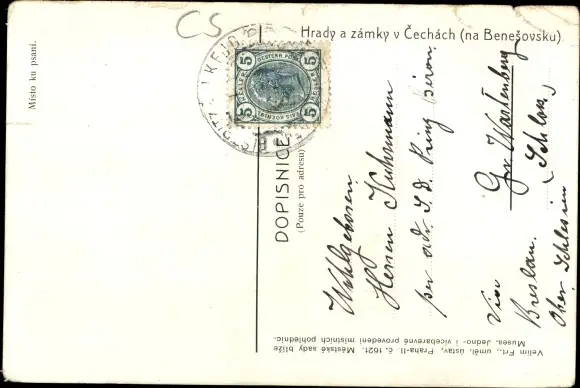 Hrady a zámky v Čechách (na Benešovsku)
Místo ku psaní.
5 5
5 5
BISTRITZ
DOPISNICE
(Pouze pro adresu)
Wohlgeboren
Herren Kuhrmann
per adr. S. D. Prinz Biron
Gr. Wartenberg
(Schloss)
Vice
Breslau.
Ober Schlesien
Velím Frt., uměl. ústav, Praha-II. č. 1621. Městské sady blíže
Musea. Jedno- i vícebarevné provedení místních pohlednic.
CS